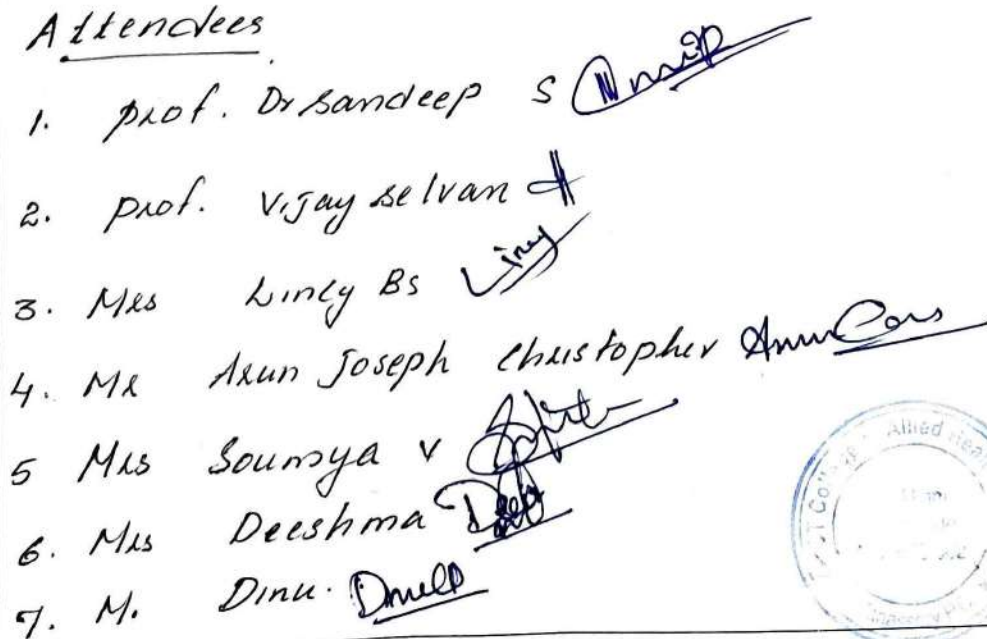 Attendees
1. Prof. Dr Sandeep S
2. Prof. Vijay Selvan
3. Mrs Lincy Bs Lincy
4. Mr Arun Joseph Christopher
5 Mrs Soumya V
6. Mrs Deeshma
7. M. Dinu.
College Allied Heal